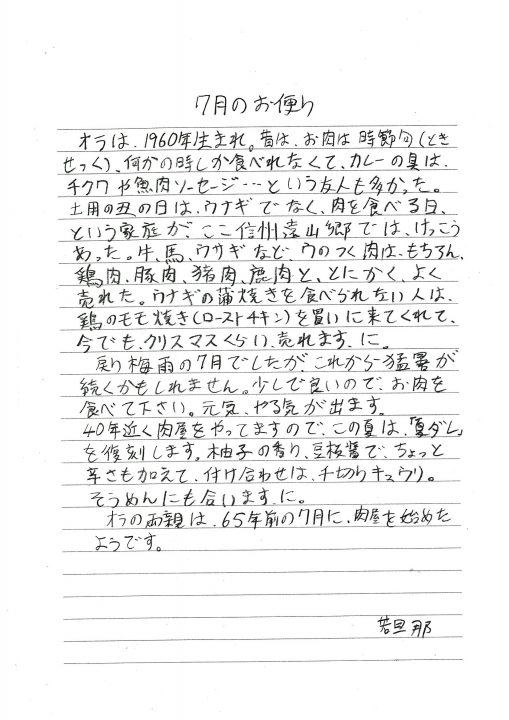 7月のお便り
オラは、1960年生まれ。昔は、お肉は時節句(とき
せっく)、何かの時しか食べれなくて、カレーの具は、
チクワや魚肉ソーセージ…という友人も多かった。
土用の丑の日は、ウナギでなく、肉を食べる日、
という家庭が、ここ信州遠山郷では、けっこう
あった。牛、馬、ウサギなど、ウのつく肉は、もちろん、
鶏肉、豚肉、猪肉、鹿肉と、とにかく、よく
売れた。ウナギの蒲焼きを食べられない人は、
鶏のモモ焼き(ローストチキン)を買いに来てくれて、
今でも、クリスマスくらい、売れます、に。
戻り梅雨の7月でしたが、これから猛暑が
続くかもしれません。少しで良いので、お肉を
食べて下さい。元気、やる気が出ます。
40年近く肉屋をやってますので、この夏は、「夏ダレ」
を復刻します。柚子の香り、豆板醤で、ちょっと
辛さも加えて、付け合わせは、千切りキュウリ。
そうめんにも合います、に。
オラの両親は、65年前の7月に、肉屋を始めた
ようです。
若旦那